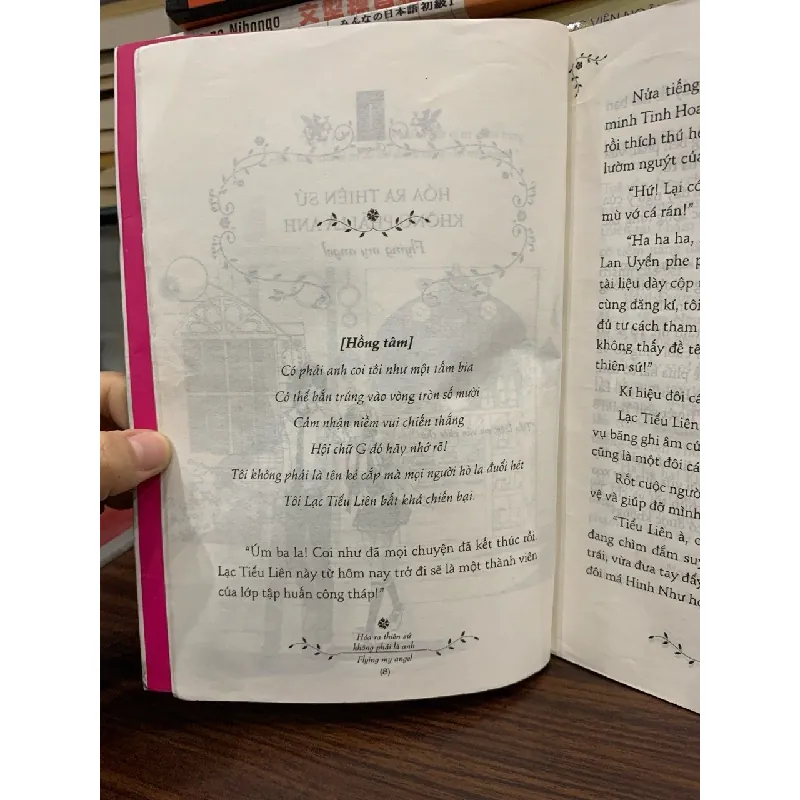 Nihongo
みんなの日本語 初級 I
[Hồng tâm]
Có phải anh coi tôi như một tấm bia
Cô thể bắn trúng vào vòng tròn số mười
Cảm nhận niềm vui chiến thắng
Hội chữ G đó hãy nhớ rõ!
Tôi không phải là tên kẻ cắp mà mọi người hò la đuổi hét
Tôi Lạc Tiểu Liên bất khả chiến bại.
“Úm ba la! Coi như đã mọi chuyện đã kết thúc rồi.
Lạc Tiểu Liên này từ hôm nay trở đi sẽ là một thành viên
của lớp tập huấn công tháp!”
Hóa ra thiên sứ
không phải là anh
Flying my angel
(8)
HÓA RA THIÊN SỨ
Flying my angel
Nửa tiếng
minh Tinh Hoa
rồi thích thú
lườm nguýt của
“Hứ! Lại có
mù vớ cá rán!”
“Ha ha ha,
Lan Uyển phe
tài liệu dày cộp
cùng đăng kí, tôi
đủ tư cách tham
không thấy đề tê
thiên sứ!”
Kí hiệu đôi cá
Lạc Tiểu Liên
vụ băng ghi âm cú
cũng là một đôi cá
Rốt cuộc người
vệ và giúp đỡ mình
“Tiểu Liên à,
đang chìm đắm suy
trái, vừa đưa tay đẩy
đôi má Hinh Như